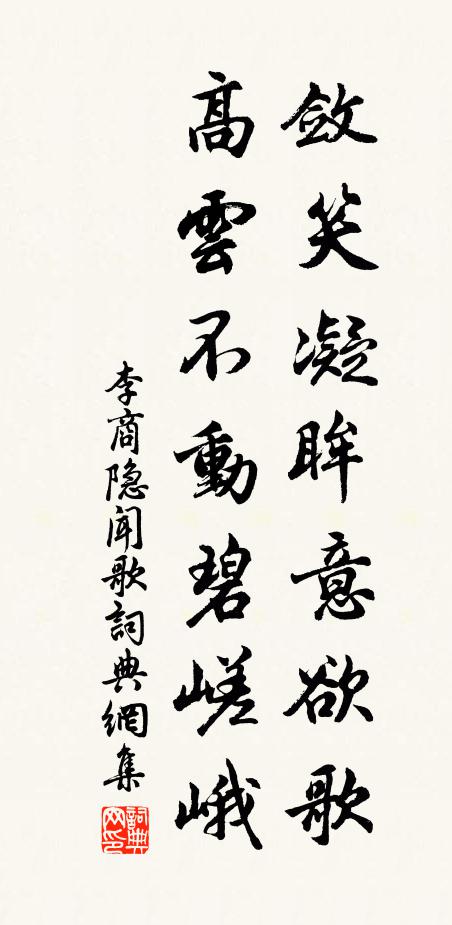 斂笑凝眸意欲歌
高雲不動碧嵯峨
李商隐聞歌詞典網集
詞典網印